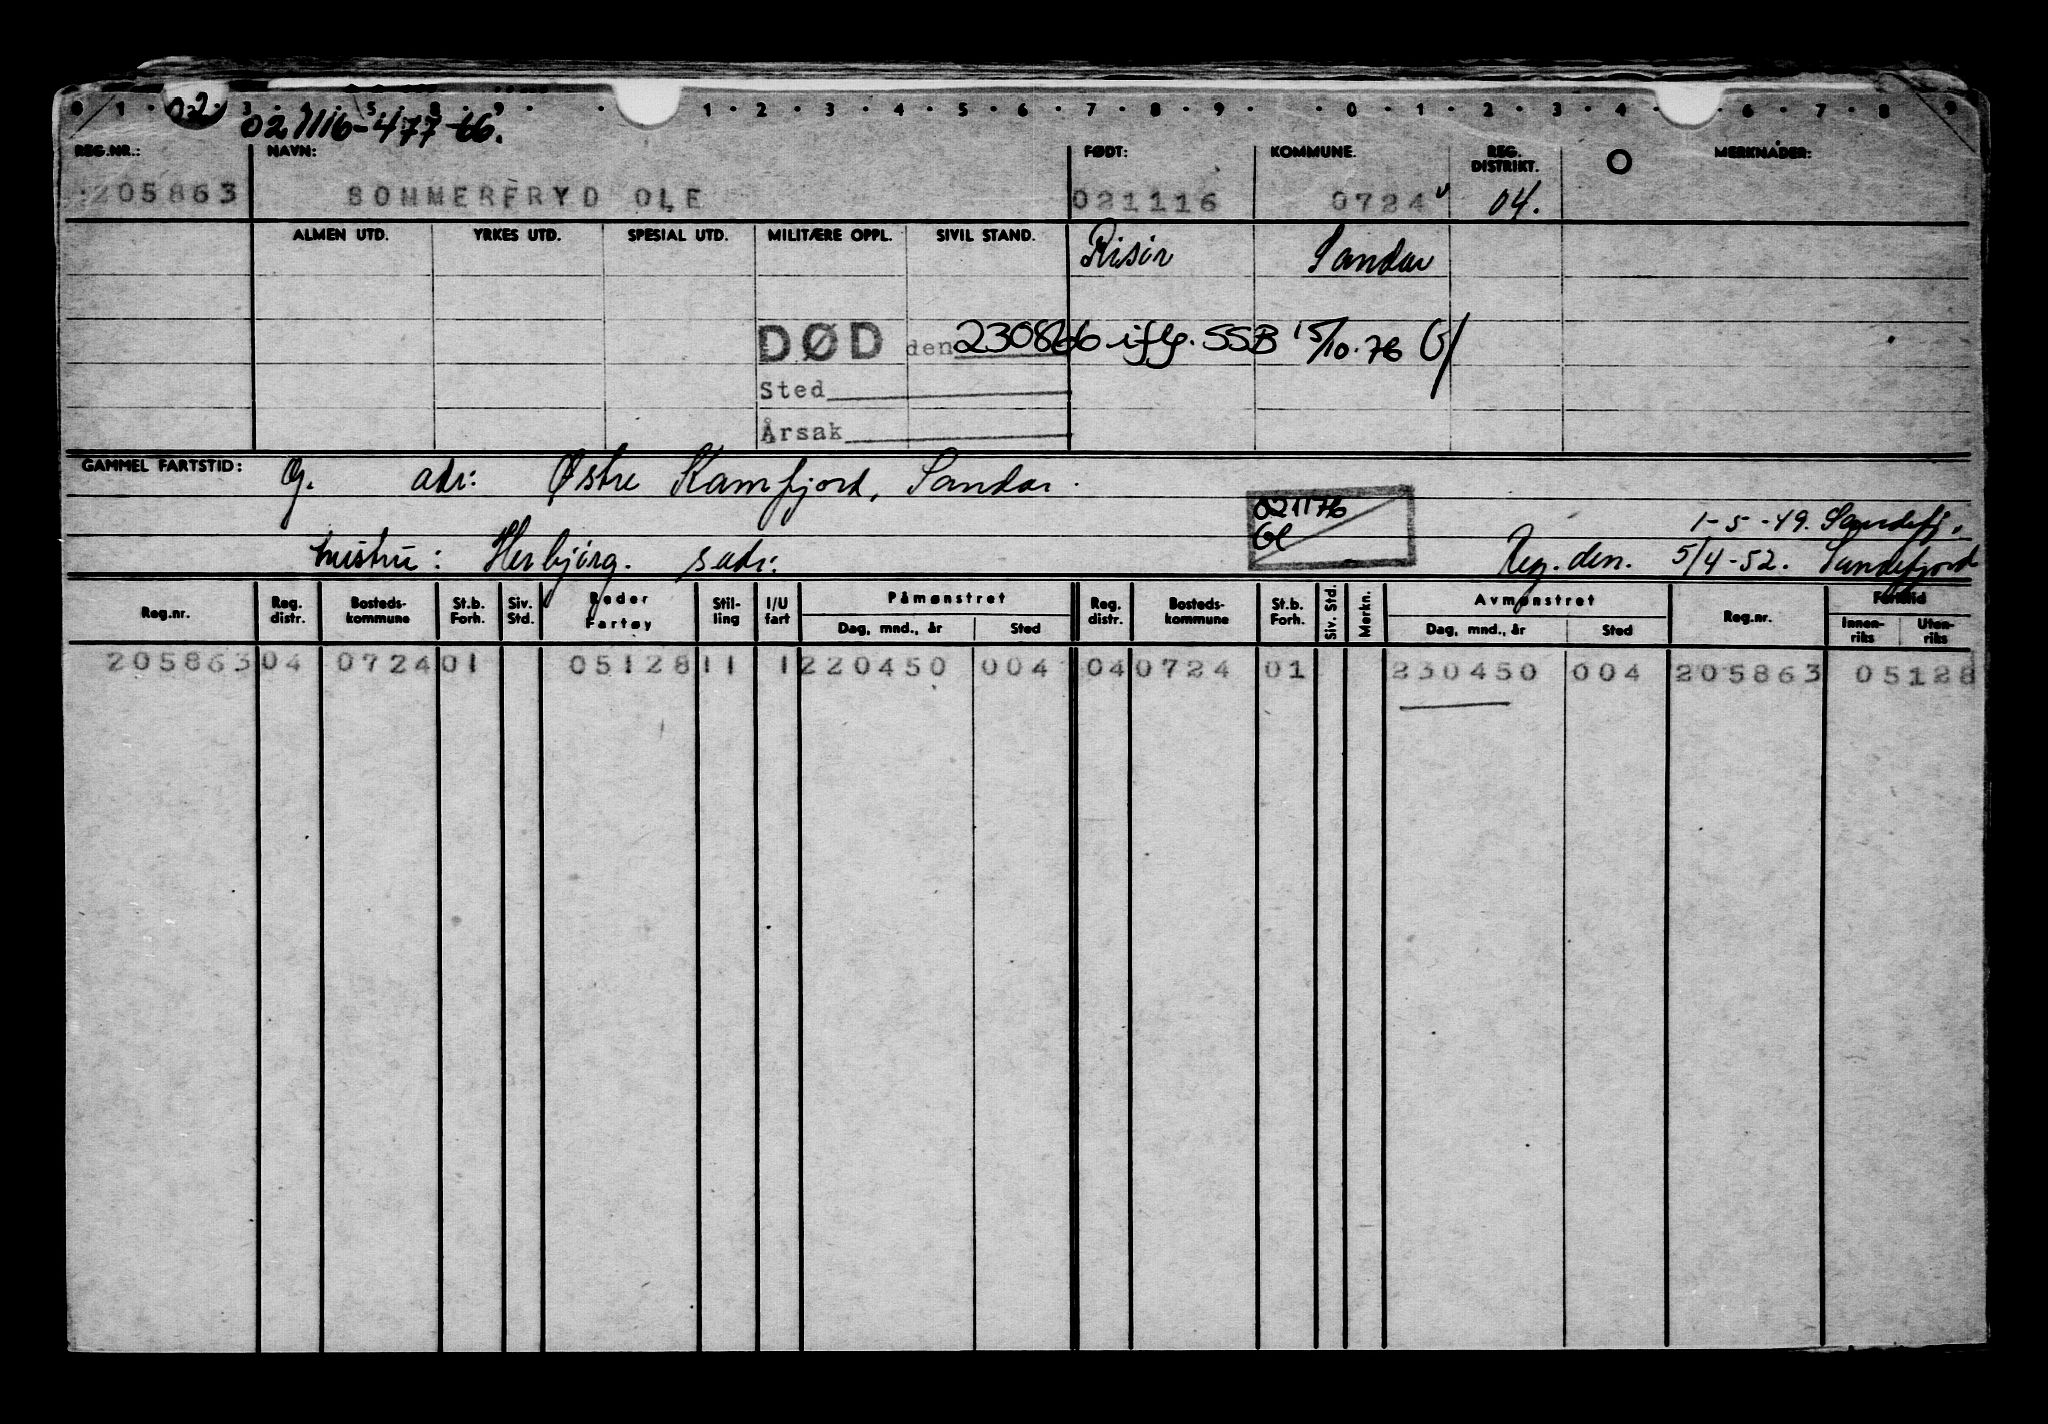 021116-477-66.
REG.NR.: NAVN: FØDT: KOMMUNE. REG. DISTRIKT. MERKNADER:
205863 SOMMERFRYD OLE 021116 0724 04.
ALMEN UTD. YRKES UTD. SPESIAL UTD. MILITÆRE OPPL. SIVIL STAND. Risør Sandar
DØD den 230866 iflg. SSB 15/10.76
Sted
Årsak
GAMMEL FARTSTID: G. adr: Østre Kamfjord, Sandar.
1-5-49. Sandefj.
hustru: Herbjørg. s adr: Reg. den. 5/4-52. Sandefjord
Reg.nr. Reg. distr. Bosteds-kommune St.b. Forh. Siv. Std. Reder Fartøy Stil-ling I/U fart Påmønstret Dag, mnd., år Sted Reg. distr. Bosteds-kommune St.b. Forh. Siv. Std. Merkn. Avmønstret Dag, mnd., år Sted Reg.nr. Fartstid Innen-riks Uten-riks
205863 04 0724 01 05128 11 1 220450 004 04 0724 01 230450 004 205863 05128